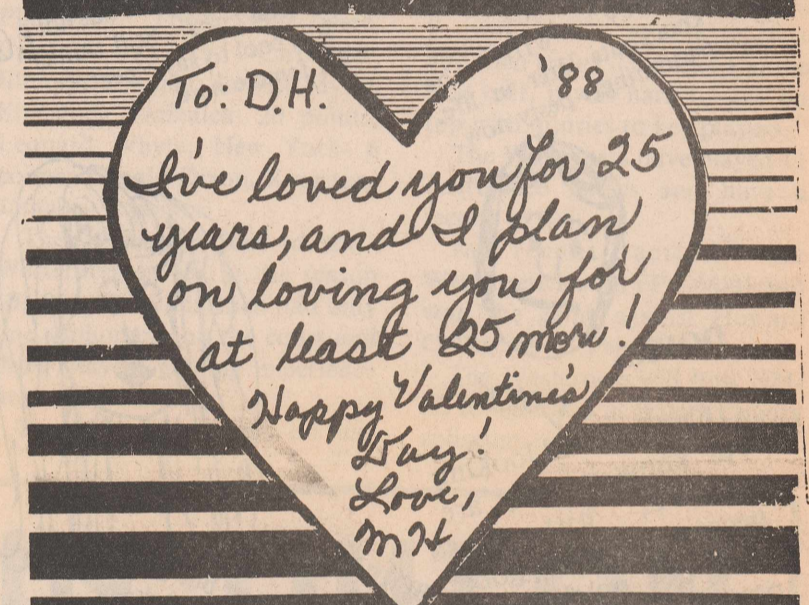 To: D.H. '88
I've loved you for 25
years, and I plan
on loving you for
at least 25 more!
Happy Valentine's
Day!
Love,
MH